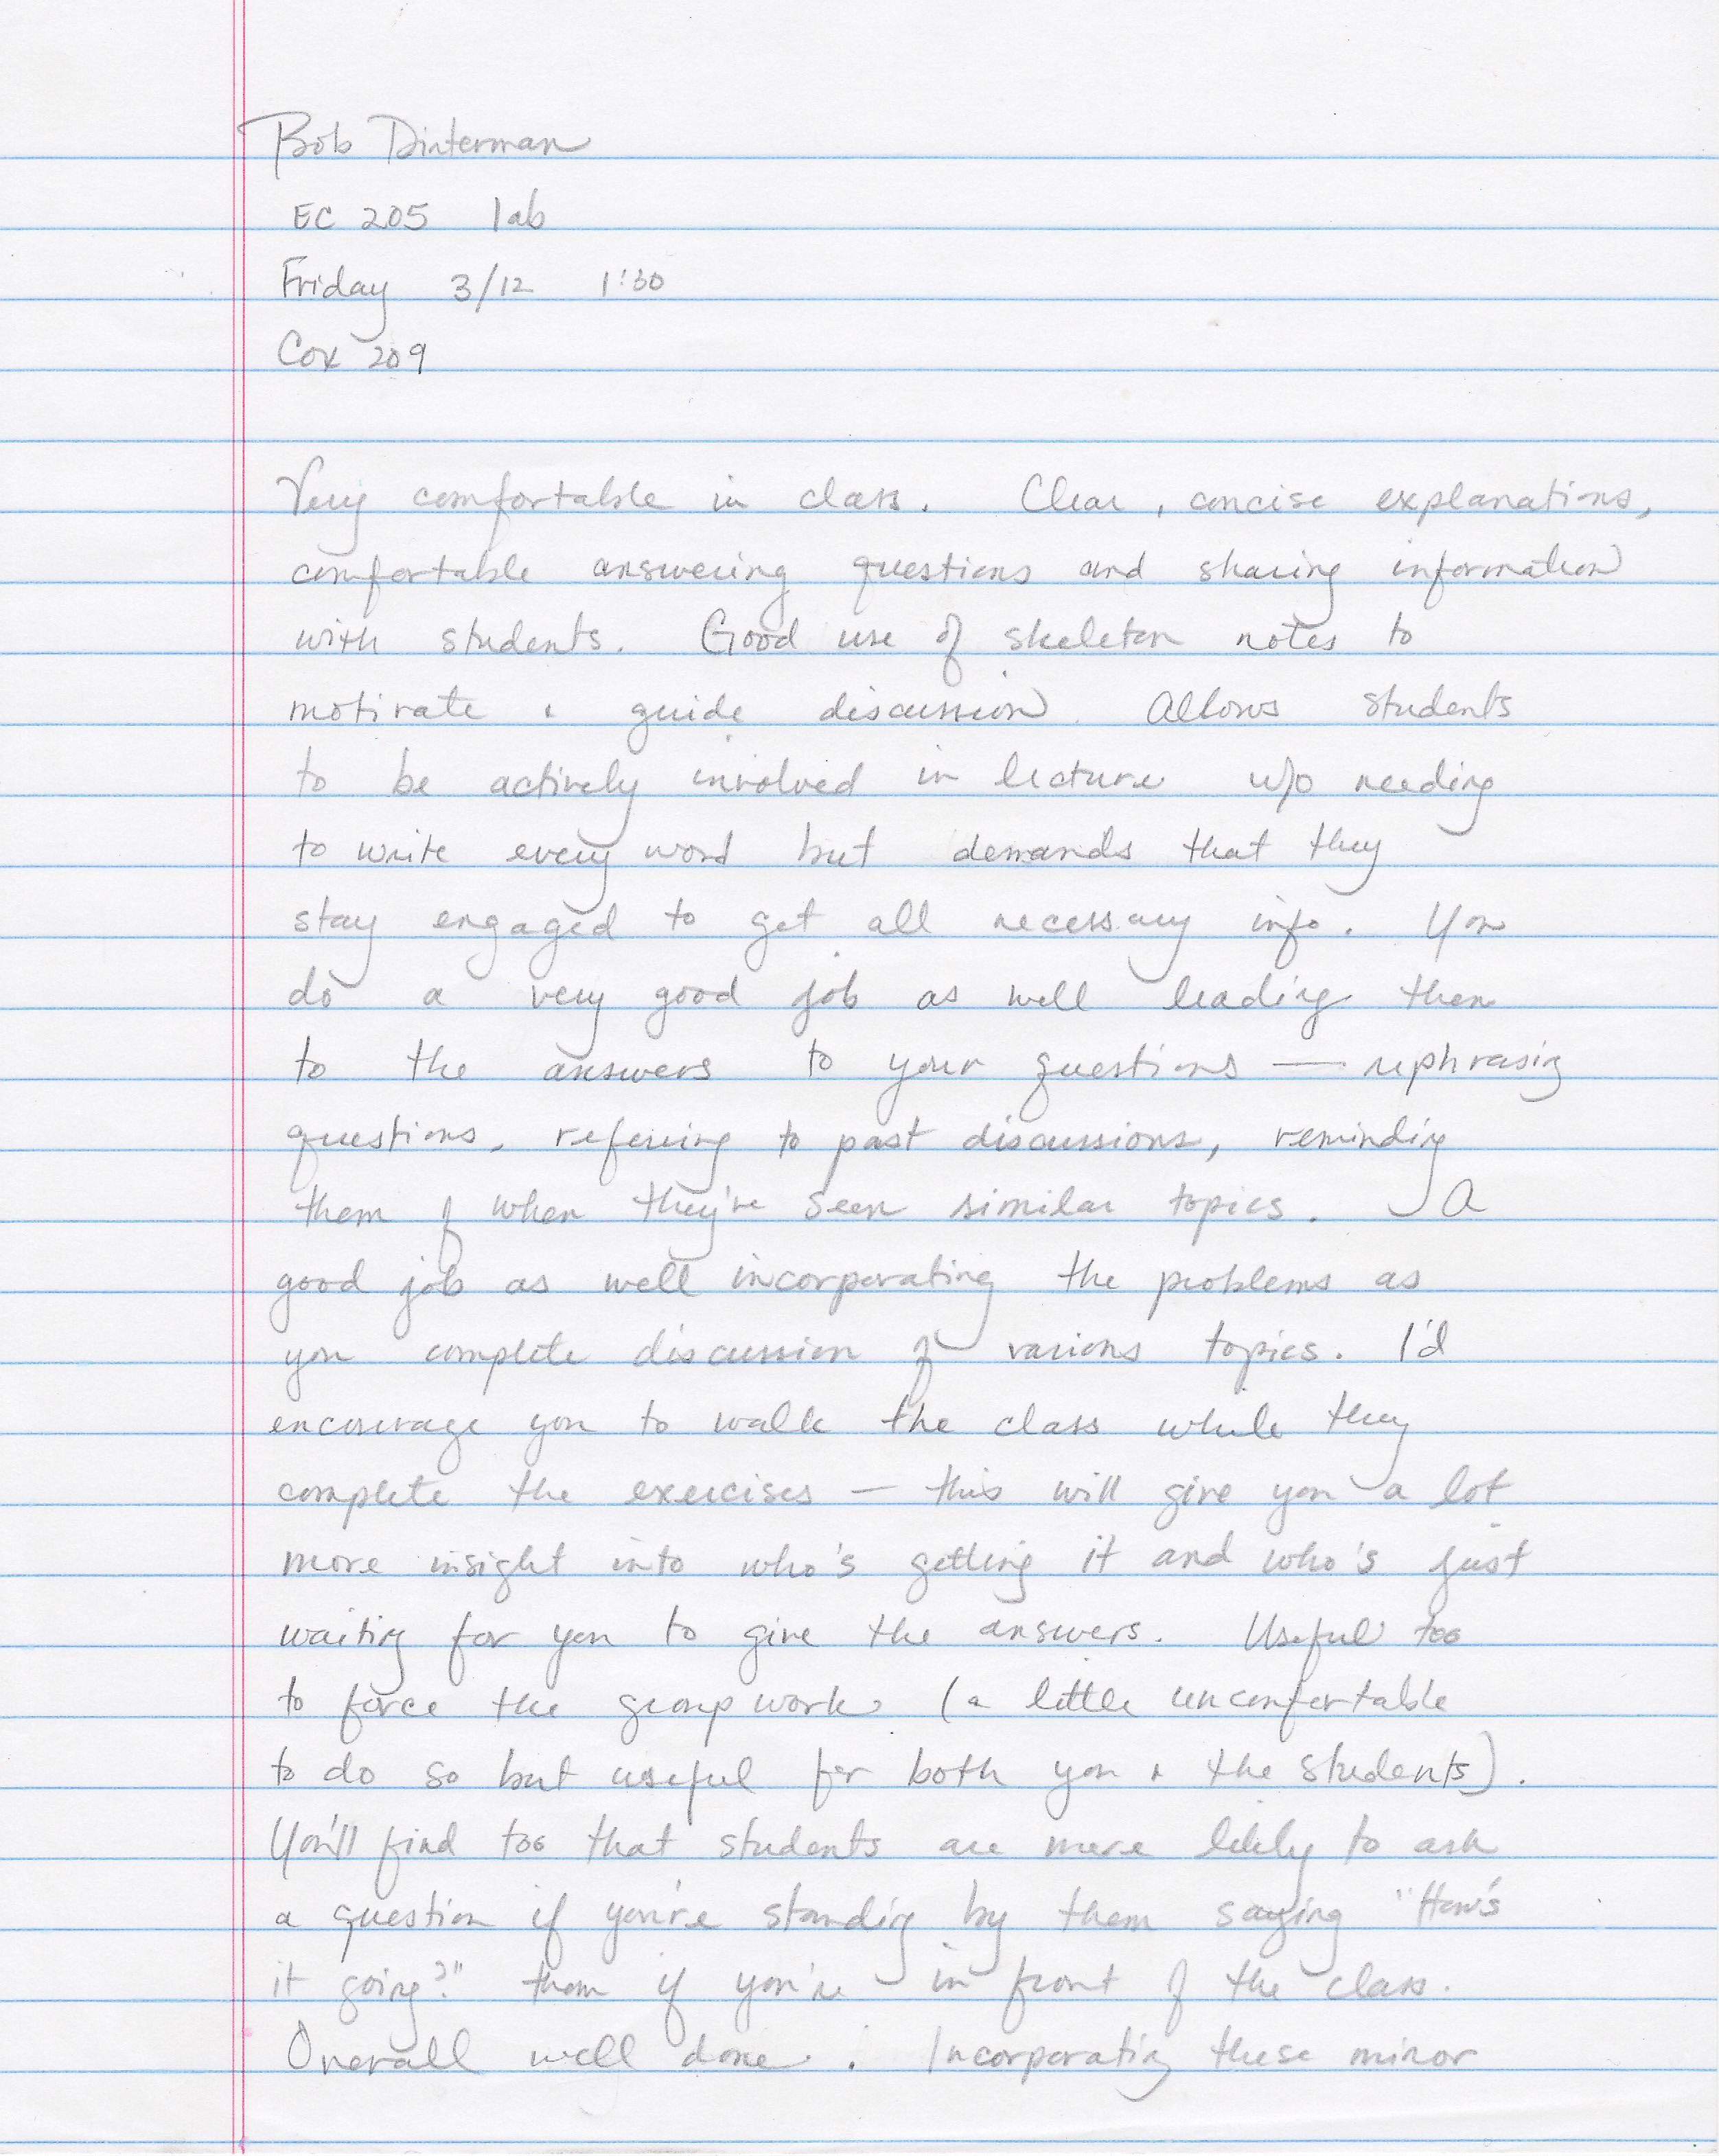 Bob Dinterman
EC 205 lab
Friday 3/12 1:30
Cox 209
Very comfortable in class. Clear, concise explanations,
comfortable answering questions and sharing information
with students. Good use of skeleton notes to
motivate & guide discussion. Allows students
to be actively involved in lecture w/o needing
to write every word but demands that they
stay engaged to get all necessary info. You
do a very good job as well leading them
to the answers to your questions — rephrasing
questions, referring to past discussions, reminding
them of when they're seen similar topics. A
good job as well incorporating the problems as
you complete discussion of various topics. I'd
encourage you to walk the class while they
complete the exercises — this will give you a lot
more insight into who's getting it and who's just
waiting for you to give the answers. Useful too
to force the group work (a little uncomfortable
to do so but useful for both you & the students).
You'll find too that students are more likely to ask
a question if you're standing by them saying "How's
it going?" than if you're in front of the class.
Overall well done. Incorporating these minor